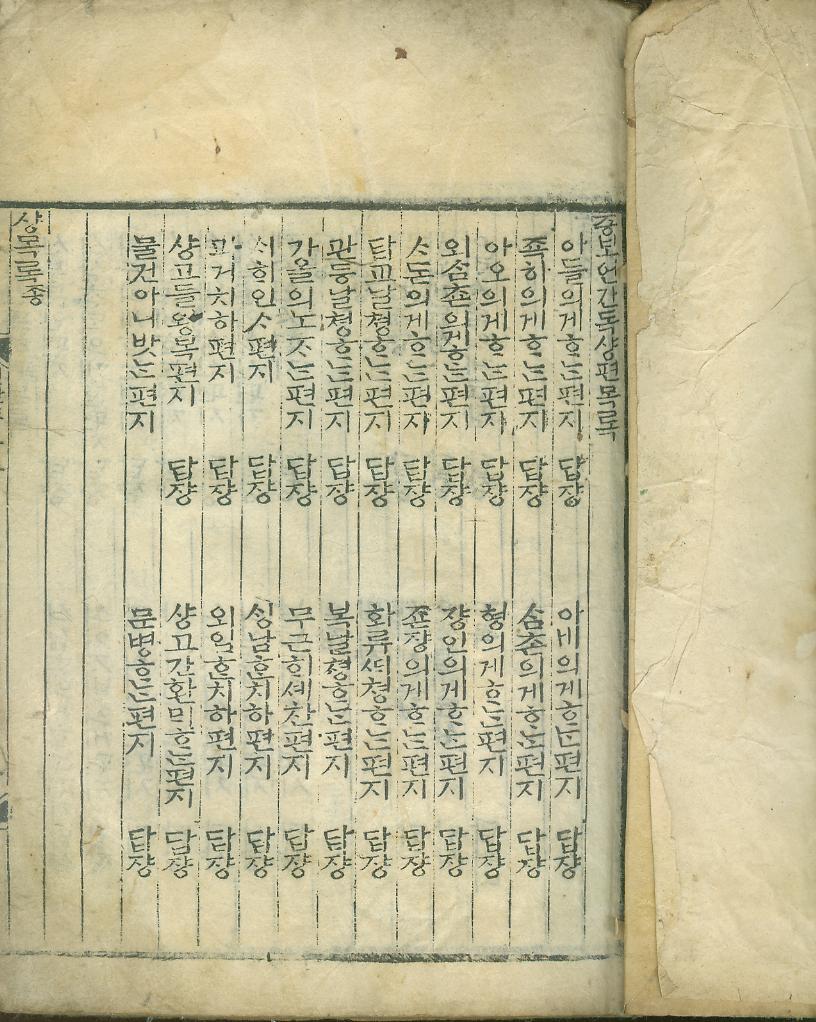 증보언간독샹편목록
아들의게ᄒᆞᄂᆞᆫ편지 답쟝 아비의게ᄒᆞᄂᆞᆫ편지 답쟝
족하의게ᄒᆞᄂᆞᆫ편지 답쟝 삼촌의게ᄒᆞᄂᆞᆫ편지 답쟝
아오의게ᄒᆞᄂᆞᆫ편지 답쟝 형의게ᄒᆞᄂᆞᆫ편지 답쟝
외삼촌의게ᄒᆞᄂᆞᆫ편지 답쟝 쟝인의게ᄒᆞᄂᆞᆫ편지 답쟝
사돈의게ᄒᆞᄂᆞᆫ편지 답쟝 죤쟝의게ᄒᆞᄂᆞᆫ편지 답쟝
답교날쳥ᄒᆞᄂᆞᆫ편지 답쟝 화류ᄯᅢ쳥ᄒᆞᄂᆞᆫ편지 답쟝
관등날쳥ᄒᆞᄂᆞᆫ편지 답쟝 복날쳥ᄒᆞᄂᆞᆫ편지 답쟝
가을의노ᄌᆞᄂᆞᆫ편지 답쟝 무근ᄒᆡ셰찬편지 답쟝
ᄉᆡᄒᆡ인ᄉᆞ편지 답쟝 ᄉᆡᆼ남ᄒᆞᆫ치하편지 답쟝
과거치하편지 답쟝 외임ᄒᆞᆫ치하편지 답쟝
샹고들왕복편지 답쟝 샹고간환ᄆᆡᄒᆞᄂᆞᆫ편지 답쟝
물건아니밧ᄂᆞᆫ편지 문병ᄒᆞᄂᆞᆫ편지 답쟝
샹목록죵